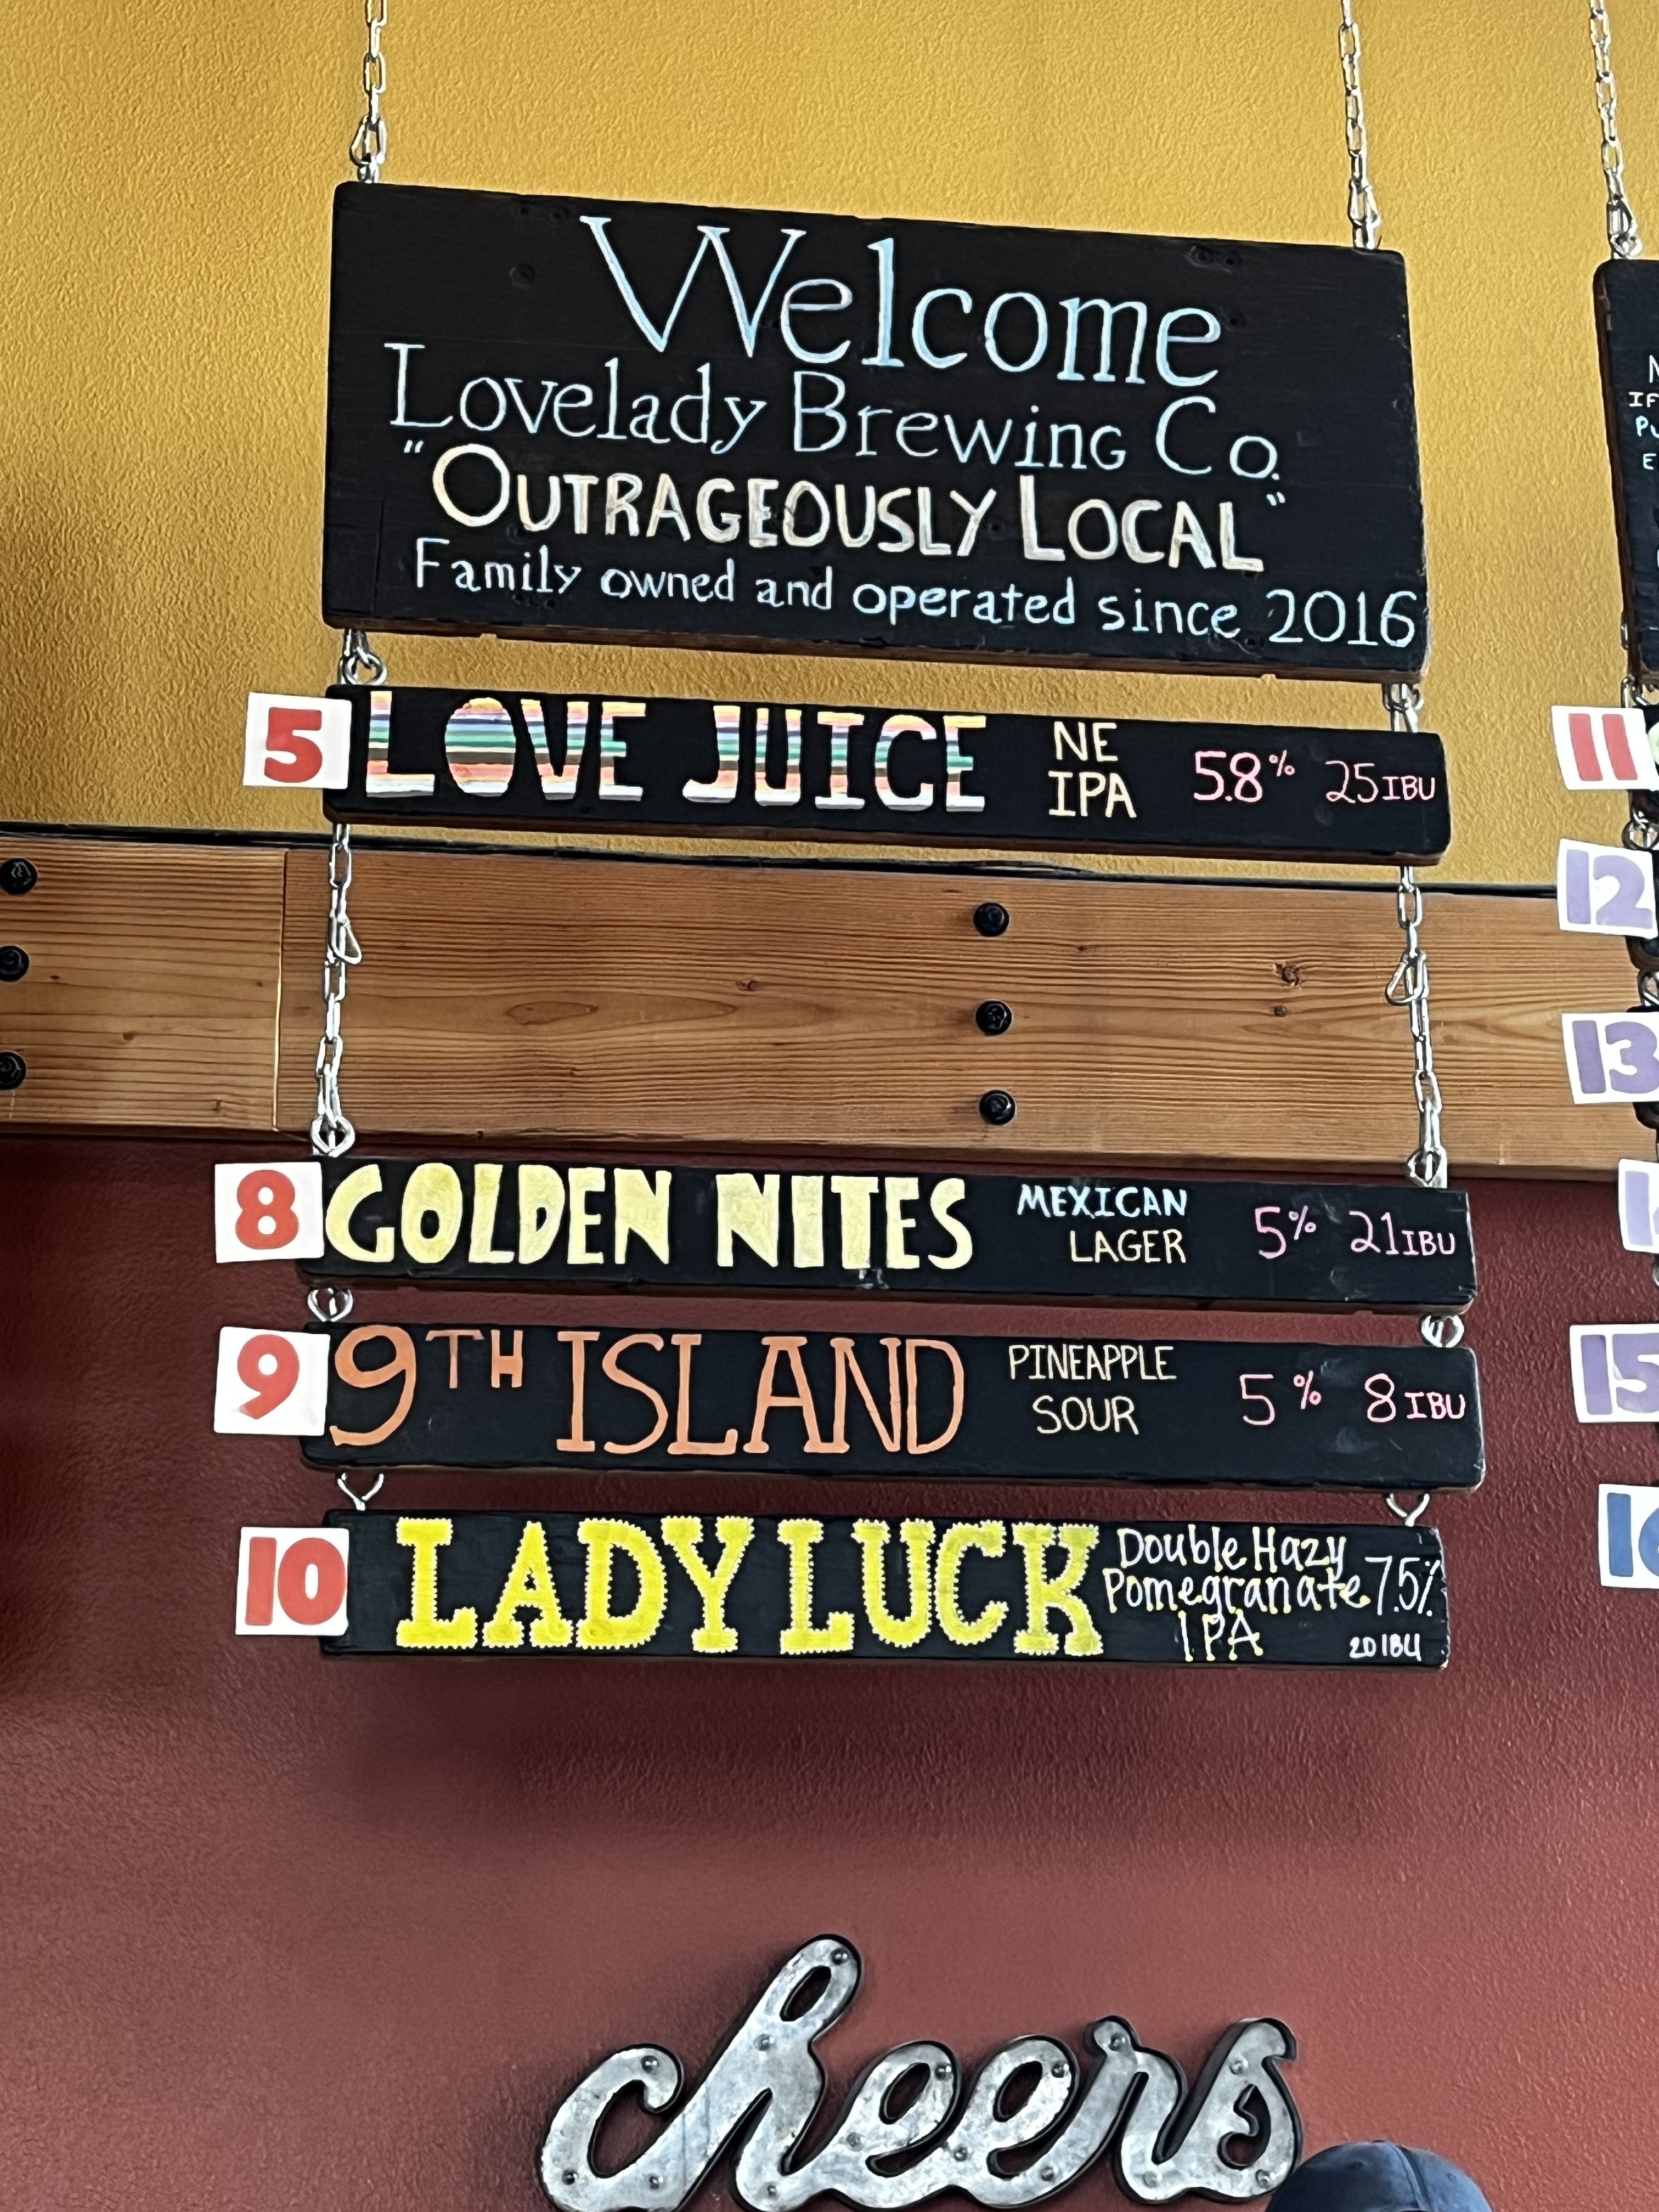 Welcome
Lovelady Brewing Co.
"OUTRAGEOUSLY LOCAL"
Family owned and operated since 2016
5 LOVE JUICE NE IPA 5.8% 25 IBU
8 GOLDEN NITES MEXICAN LAGER 5% 21 IBU
9 9TH ISLAND PINEAPPLE SOUR 5% 8 IBU
10 LADY LUCK Double Hazy Pomegranate IPA 7.5% 20 IBU
cheers
IF
11
12
13
15
16